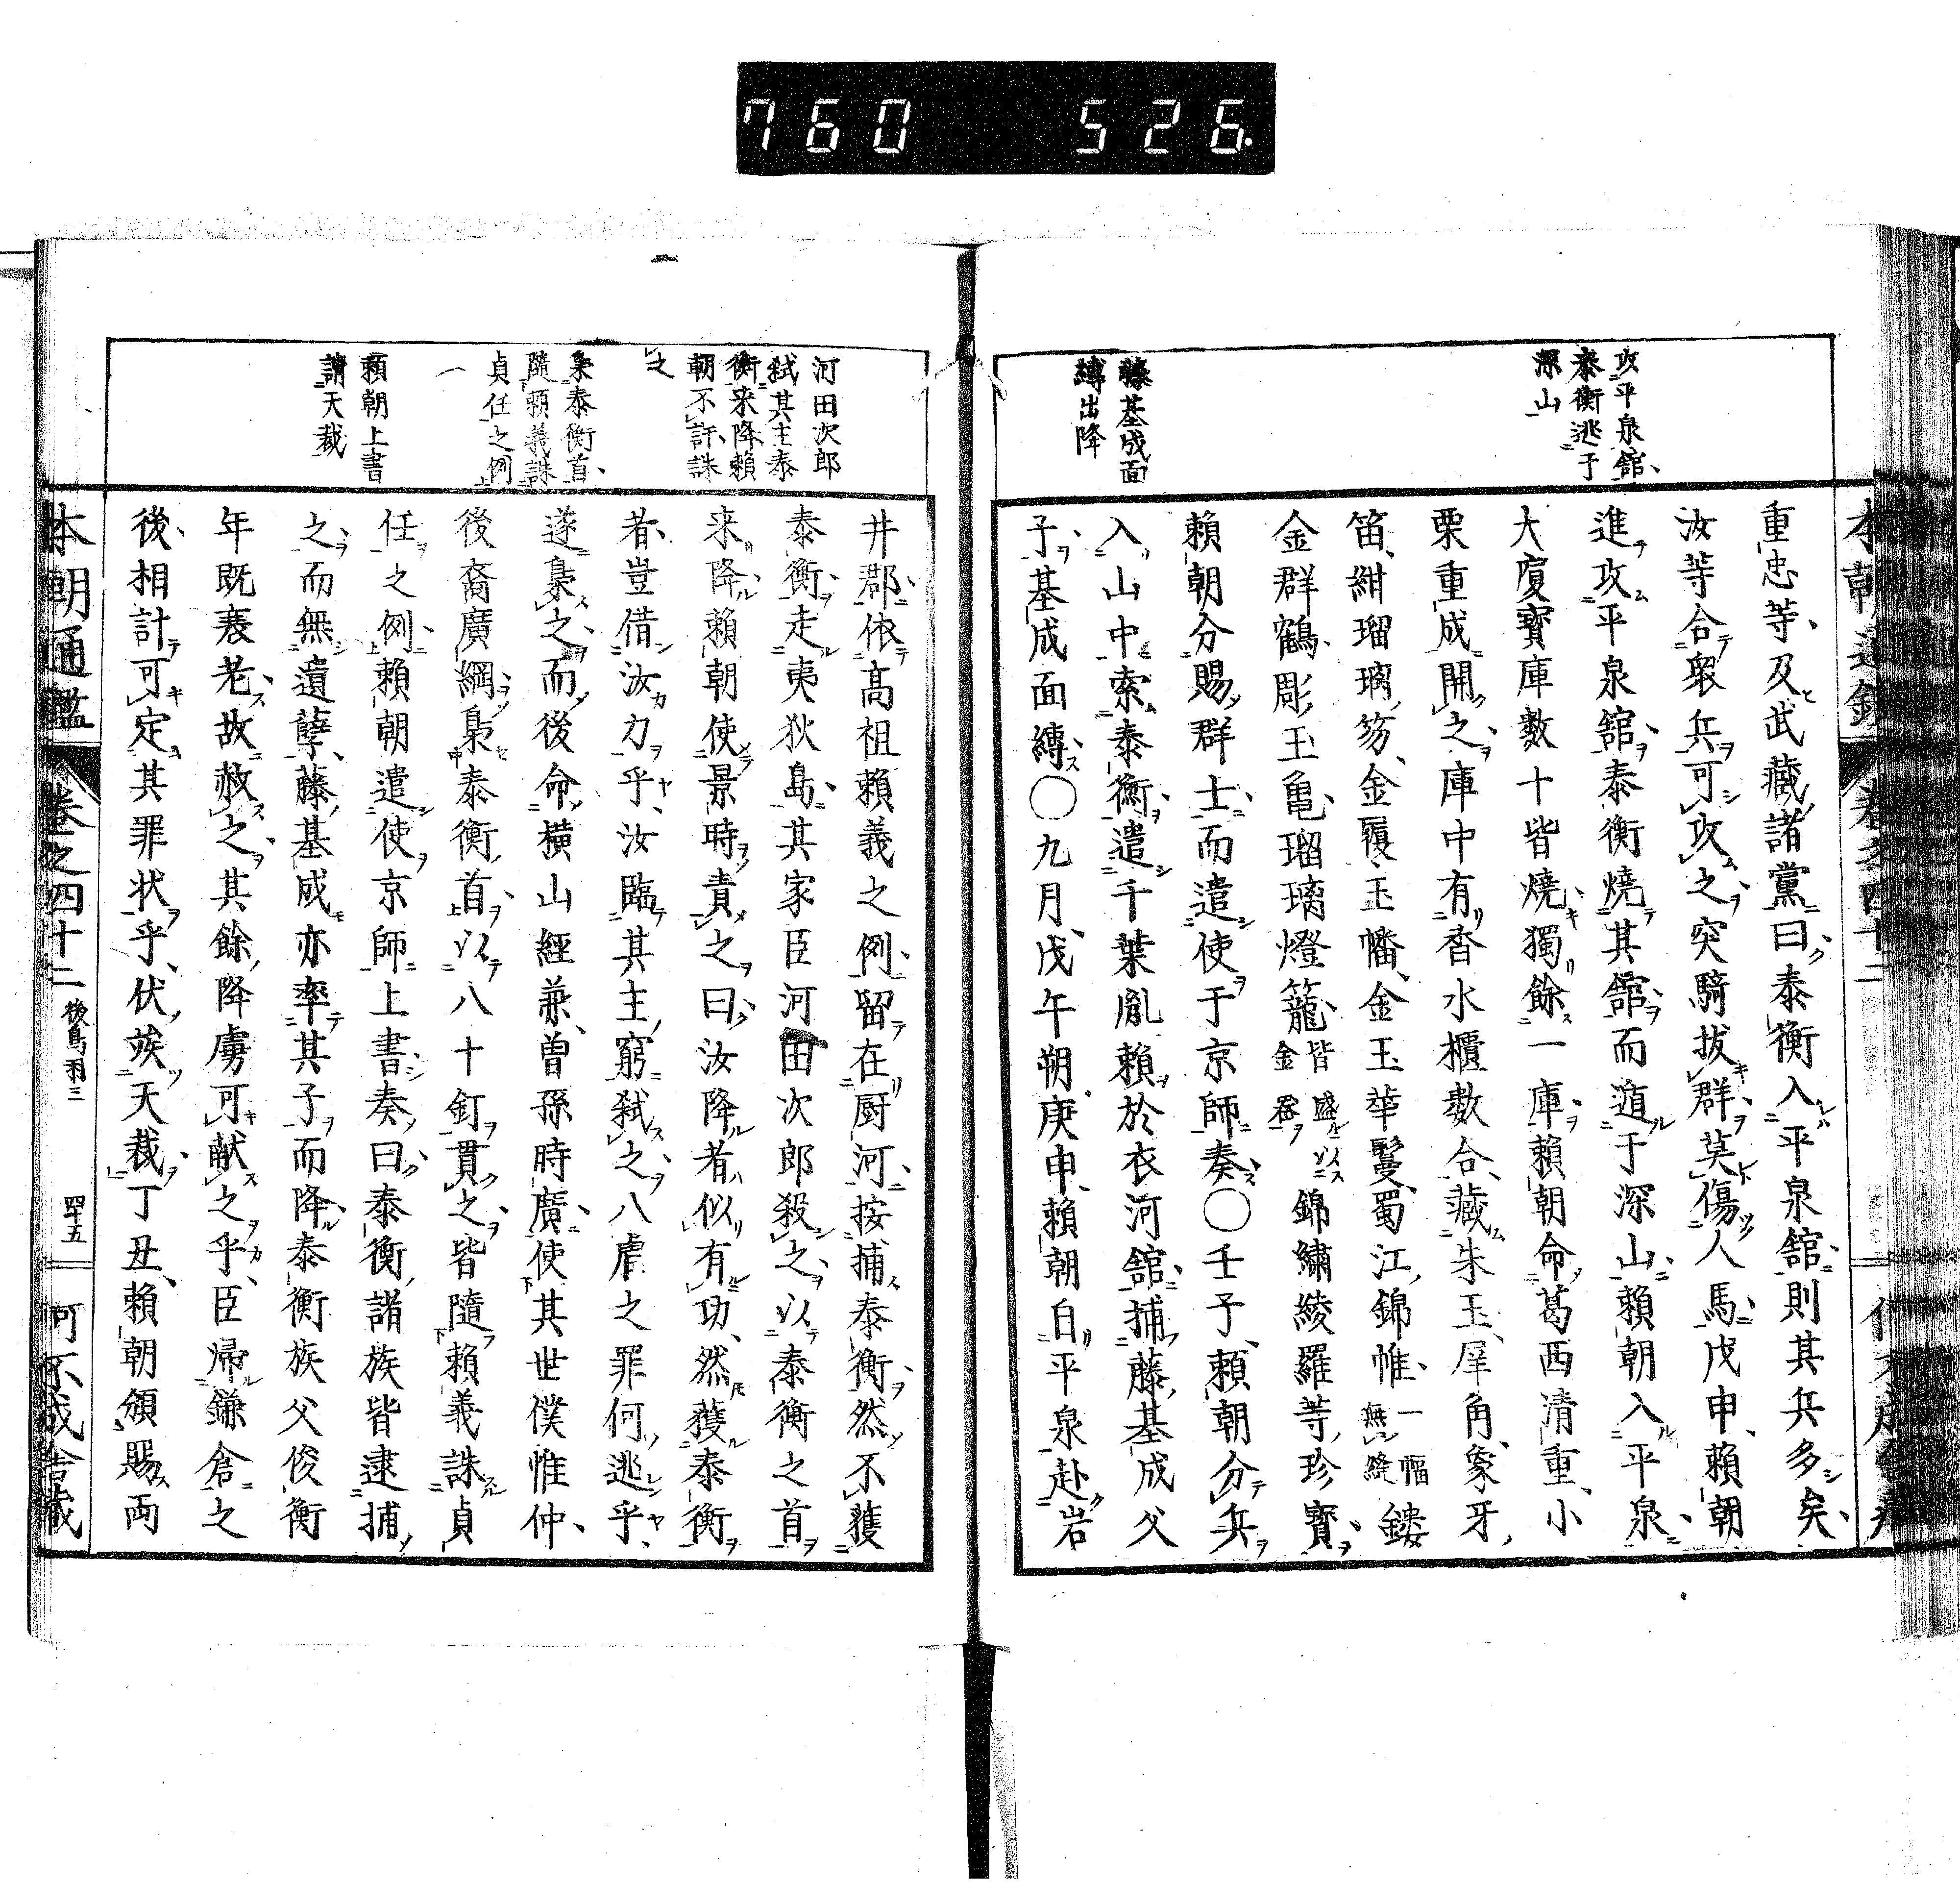 760 526.
攻平泉舘
泰衡逃于
深山
藤基成面
縛出降
重忠等及武藏諸黨曰泰衡入平泉舘則其兵多矣
汝等合衆兵可攻之突騎拔群莫傷人馬戊申賴朝
進攻平泉舘泰衡燒其舘而遁于深山賴朝入平泉
大廈寶庫數十皆燒獨餘一庫賴朝命葛西清重小
栗重成開之庫中有沓水櫃數合藏朱玉犀角象牙
笛紺瑠璃笏金履玉幡金玉華鬘蜀江錦帷一幅無縫鏤
金群鶴彫玉亀瑠璃燈籠皆盛以金器錦繡綾羅等珍寶
賴朝分賜群士而遣使于京師奏〇壬子賴朝分兵
入山中索泰衡遣千葉胤賴於衣河舘捕藤基成父
子基成面縛〇九月戊午朔庚申賴朝自平泉赴岩
河田次郎
弑其主泰
衡来降賴
朝不許誅
之
梟泰衡首
隨賴義誅
貞任之例
賴朝上書
請天裁
井郡依高祖賴義之例留在厨河按捕泰衡然不獲
泰衡走夷狄島其家臣河田次郎殺之以泰衡之首
来降賴朝使景時責之曰汝降者似有功然獲泰衡
者豈借汝力乎汝臨其主窮弑之八虐之罪何逃乎
遂梟之而後命横山經兼曽孫時廣使其世僕惟仲
後裔廣綱梟泰衡首以八十釘貫之皆隨賴義誅貞
任之例賴朝遣使京師上書奏曰泰衡諸族皆逮捕
之而無遺孽藤基成亦率其子而降泰衡族父俊衡
年既衰老故赦之其餘降虜可献之乎臣帰鎌倉之
後相計可定其罪状乎伏竢天裁丁丑賴朝頒賜両
本朝通鑑 卷之四十二 後鳥羽三 四十五 何不成舎藏